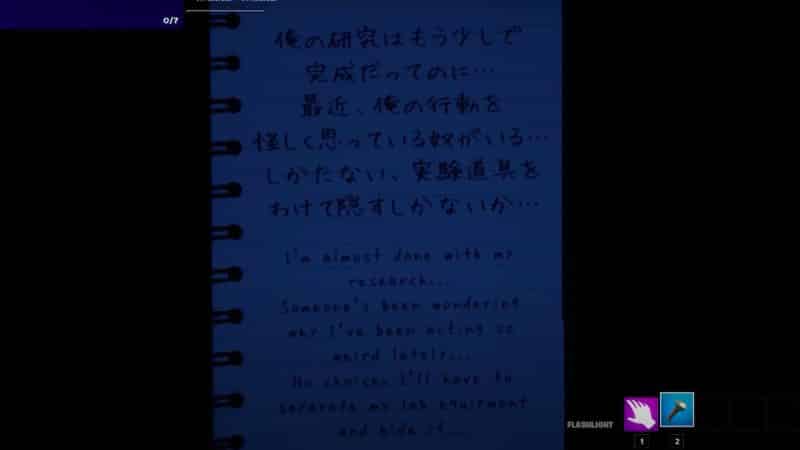 0/?
俺の研究はもう少しで
完成だってのに…
最近、俺の行動を
怪しく思っている奴がいる…
しかたない、実験道具を
わけて隠すしかないか…
I'm almost done with my
research...
Someone's been wondering
why I've been acting so
weird lately...
No choice, I'll have to
separate my lab equipment
and hide it...
FLASHLIGHT
1
2